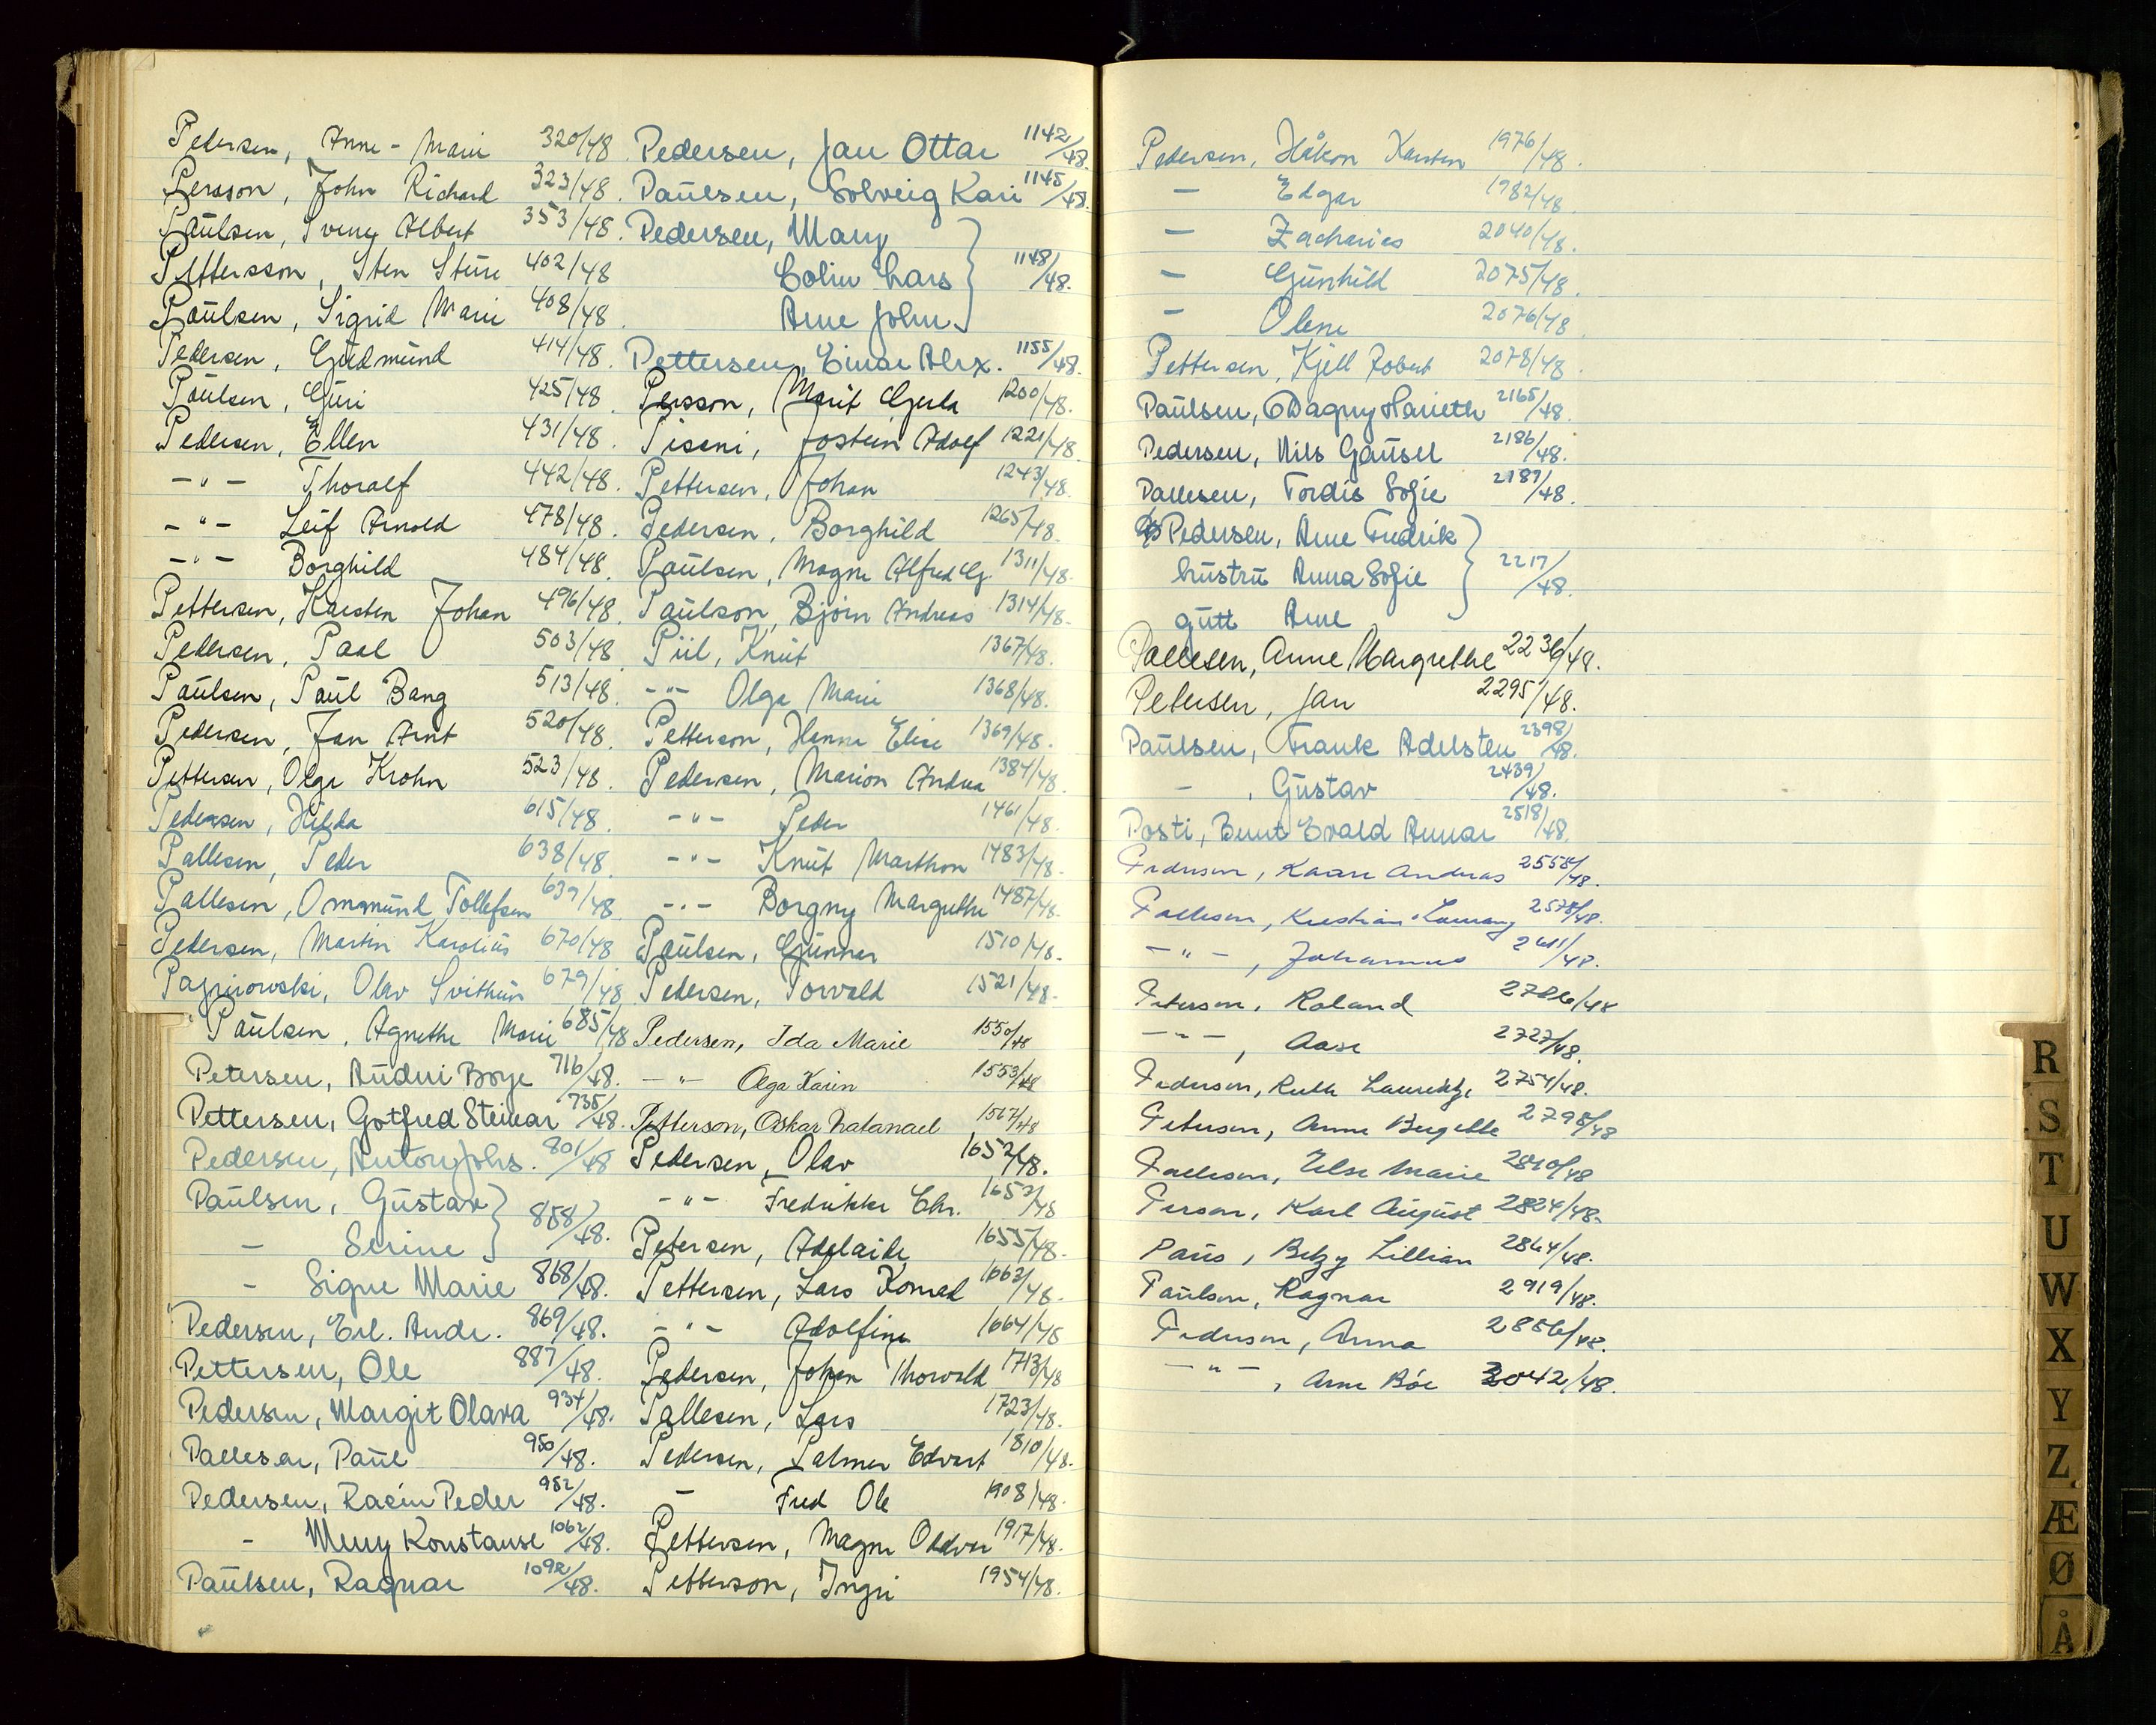 Pedersen, Anne-Marie 320/48.
Persson, John Richard 323/48.
Paulsen, Svenn Albert 353/48.
Pettersson, Sten Sture 402/48
Paulsen, Sigrid Marie 408/48.
Pedersen, Gudmund 414/48.
Paulsen, Guri 425/48
Pedersen, Ellen 431/48.
-"- Thoralf 442/48.
-"- Leif Arnold 478/48.
-"- Borghild 484/48.
Pettersen, Karsten Johan 496/48.
Pedersen, Paal 503/48
Paulsen, Paul Bang 513/48.
Pedersen, Jan Arnt 520/48.
Pettersen, Olga Krohn 523/48.
Pedersen, Hilda 615/48.
Pallesen, Peder 638/48.
Pallesen, Ommund Tollefsen 639/48.
Pedersen, Martin Karolius 670/48
Olav Svithun 679/48
Paulsen, Agnethe Marie 685/48
Petersen, Audni Borge 716/48.
Pettersen, Gotfred Steinar 735/48.
Pedersen, Anton Johs. 801/48
Paulsen, Gustav } 858/48.
- Serine
- Signe Marie 868/48.
Pedersen, Erl. Andr. 869/48.
Pettersen, Ole 887/48.
Pedersen, Margit Olava 934/48.
Pallesen, Paul 950/48.
Pedersen, Rasin Peder 952/48.
- Meny Konstanse 1062/48.
Paulsen, Ragnar 1092/48.
Pedersen, Jan Ottar 1142/48
Paulsen, Solveig Kari 1145/48.
Pedersen, Mary
Colin Lars } 1148/48.
Arne John
Pettersen, Einar Alex. 1155/48.
Persson, Marit Gerla 1200/48.
Piseni, Jostein Adolf 1221/48.
Pettersen, Johan 1243/48.
Pedersen, Borghild 1265/48.
Paulsen, Magne Alfred G. 1311/48.
Paulson, Bjørn Andreas 1314/48.
Piil, Knut 1367/48.
-"- Olga Marie 1368/48.
Petterson, Hanna Elise 1369/48.
Pedersen, Marion Andrea 1384/48.
-"- Peder 1461/48.
-"- Knut Marthon 1483/48.
-"- Borgny Margrethe 1487/48.
Paulsen, Gunnar 1510/48.
Pedersen, Torvald 1521/48.
Pedersen, Ida Marie 1550/48
-"- Olga Karin 1553/48
Petterson, Oskar Natanael 1567/48
Pedersen, Olav 1652/48.
-"- Fredrikke Chr. 1653/48
Petersen, Adelaide 1655/48.
Pettersen, Lars Konrad 1663/48.
-"- Adolfine 1664/48
Pedersen, Johan Thorvald 1713/48
Pallesen, Lars 1723/48.
Pedersen, Palmer Edvart 1810/48.
- Fred Ole 1908/48.
Pettersen, Magne Oddvar 1917/48.
Petterson, Ingri 1954/48.
Pedersen, Håkon Karsten 1976/48.
- Edgar 1982/48.
- Zacharias 2040/48.
- Gunhild 2075/48.
- Olene 2076/48
Pettersen, Kjell Robert 2078/48.
Paulsen, Dagny Harieth 2165/48.
Pedersen, Nils Gausel 2186/48.
Pallesen, Tordis Sofie 2187/48.
Pedersen, Arne Fredrik
hustru Anna Sofie } 2217/48.
gutt Arne
Pallesen, Anne Margrethe 2236/48.
Petersen, Jan 2295/48.
Paulsen, Frank Adelsten 2398/48.
- , Gustav 2439/48.
Posti, Bernt Evald Annar 2518/48.
Pedersen, Kaare Andreas 2558/48.
Pallesen, Kristian 2578/48.
-"-, Johannes 2611/48.
Peterson, Roland 2726/48
-"-, Aase 2727/48.
Pedersen, Ruth 2754/48.
Petersen, Anne Bergette 2798/48
Pallesen, Else Marie 2810/48
Person, Karl August 2824/48.
Paus, Betzy Lillian 2864/48.
Paulson, Ragnar 2919/48.
Pedersen, Anna 2856/48.
-"-, Arne Bóe 3042/48.
R
S
T
U
W
X
Y
Z
Æ
Ø
Å